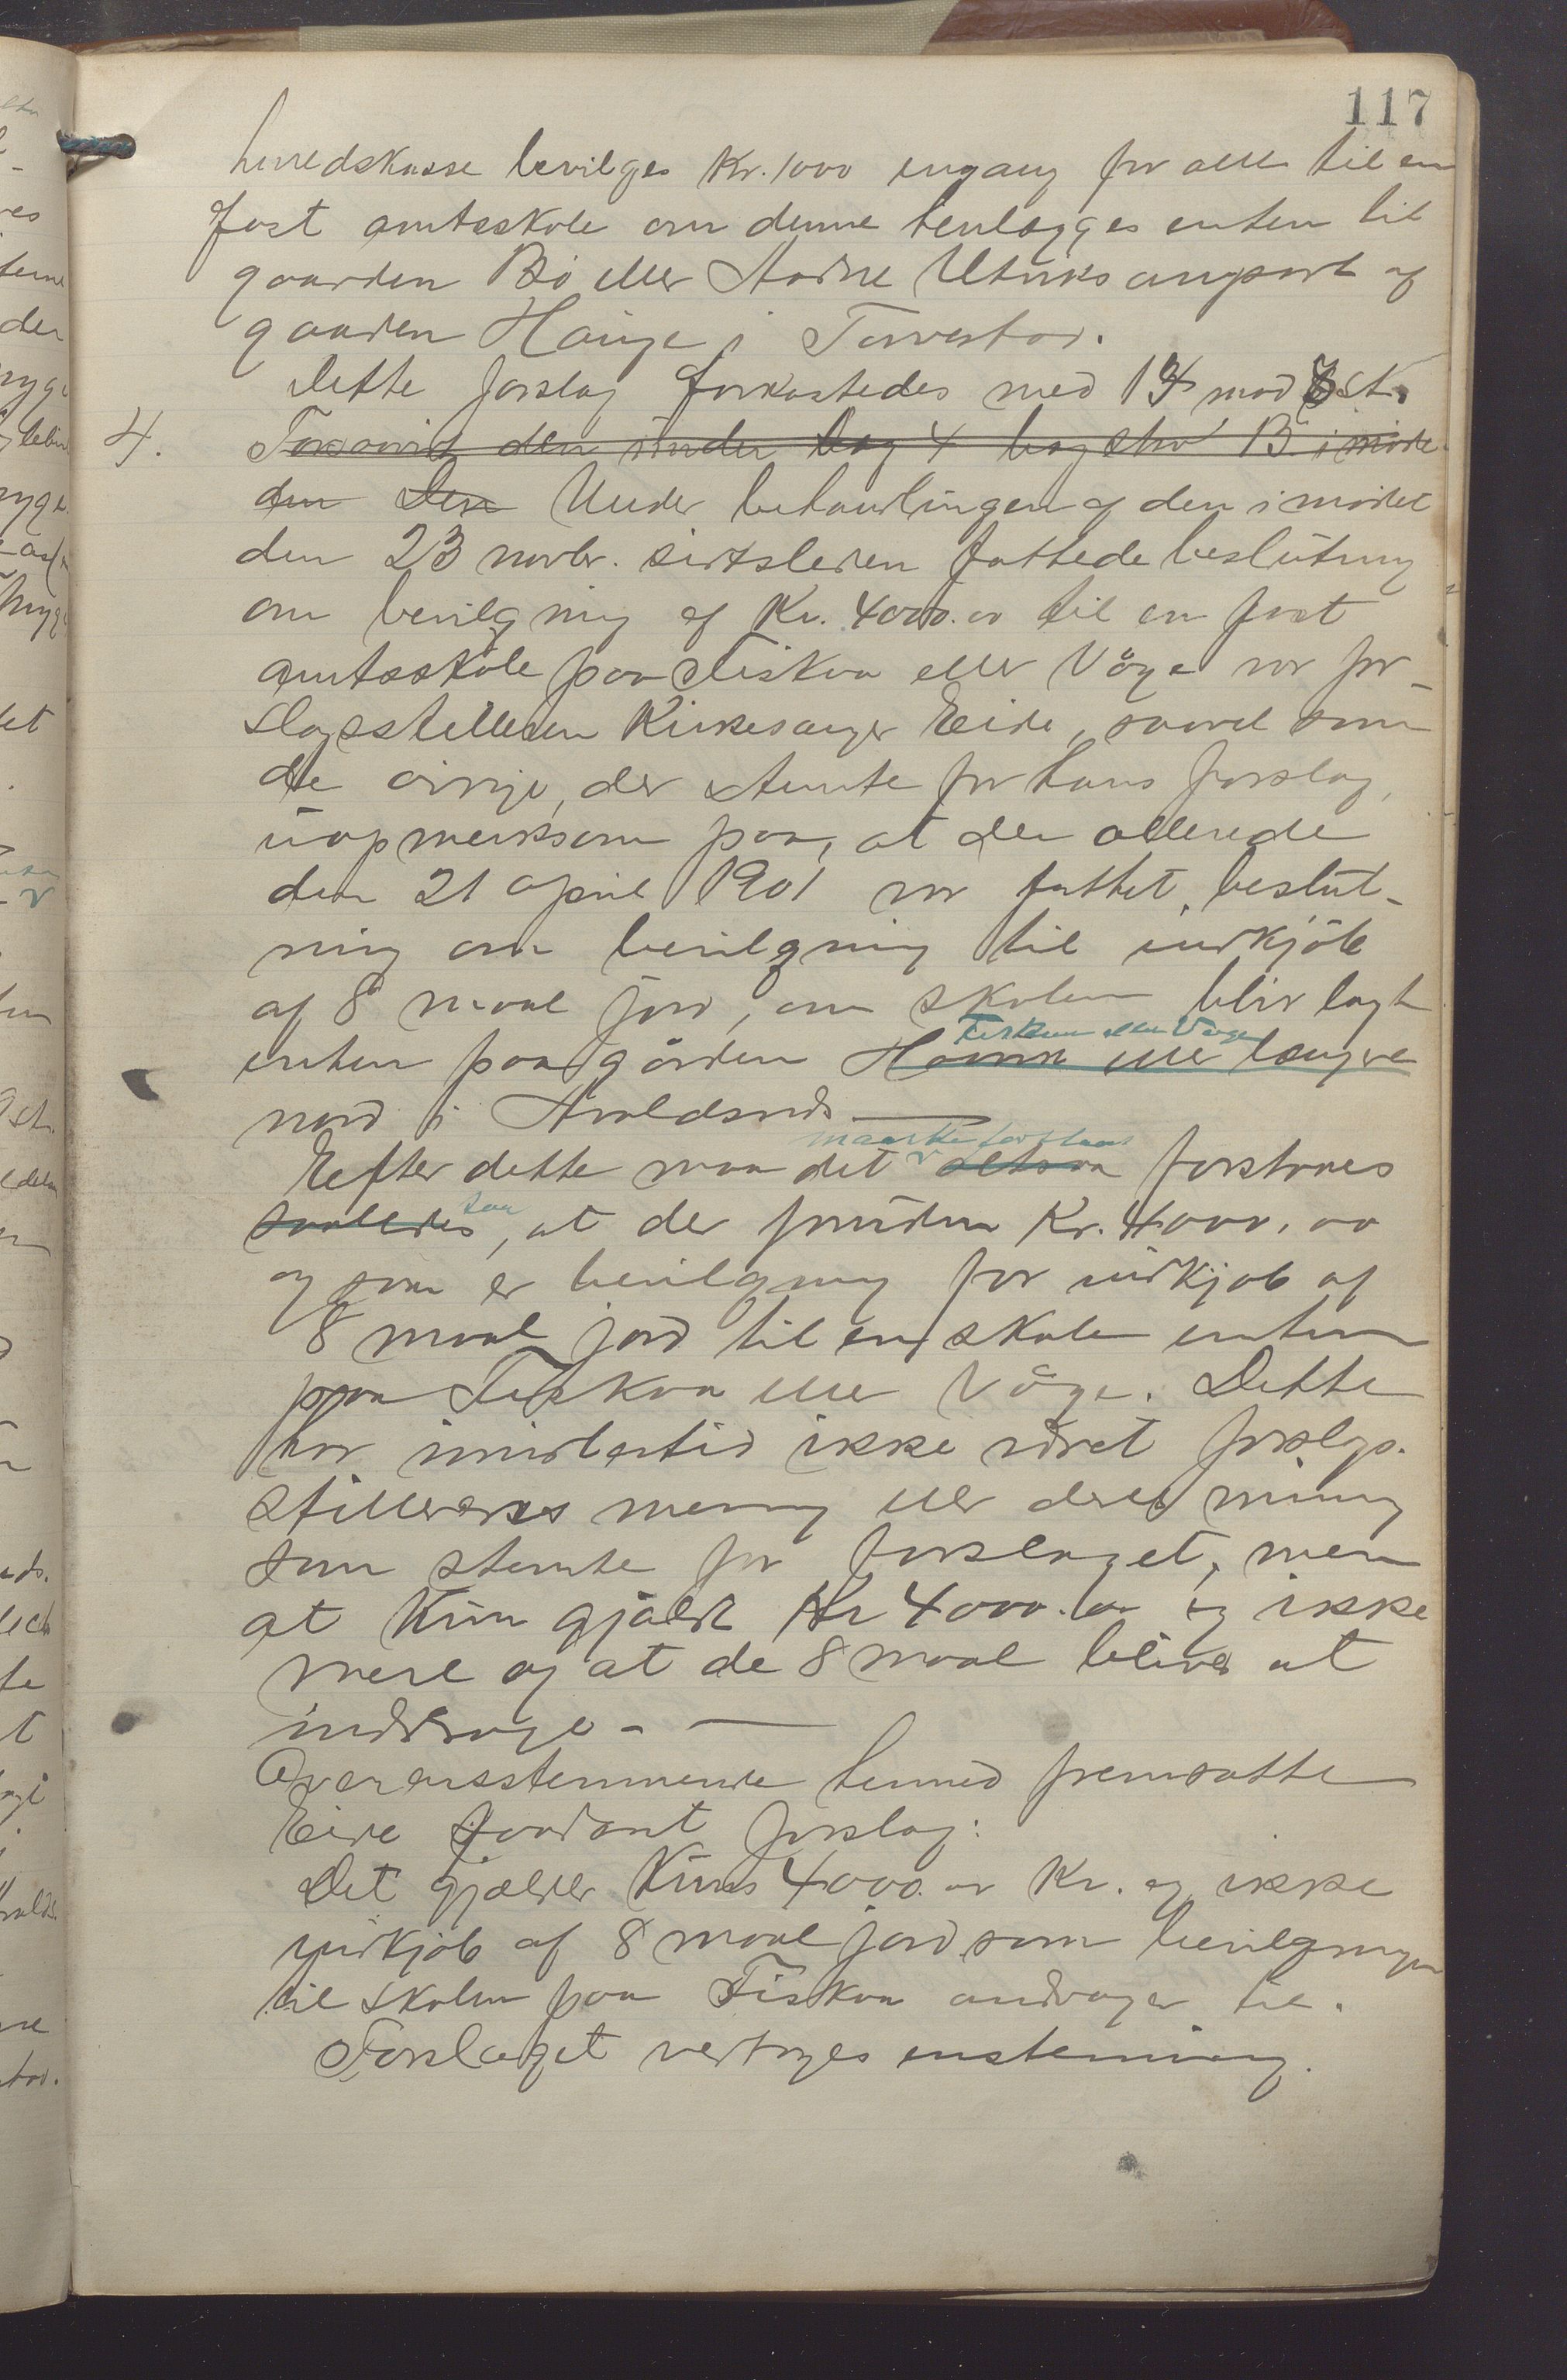 117
herredskasse bevilges Kr. 1000 engang for alle til en
fast amtsskole om denne henlægges enten til
gaarden Bö eller Aadne Utviks angpart af
gaarden Hauge i Torvestad.
Dette forslag forkastedes med 14 mod 7 st.
4.
den Den Under behandlingen af den i mödet
den 23 novbr. sidstleden fattede beslutning
om bevilgning af Kr. 4000.00 til en fast
amtsskole paa Fiskaa eller Våge var for-
slagsstilleren Kirkesanger Eide, saavel som
de övrige, der stemte for hans forslag,
uopmerksom paa, at der allerede
den 21 april 1901 var fattet beslut-
ning om bevilgning til indkjöb
af 8 maal jord, om skolen blir lagt
Fiskaa eller Våge
enten paa gården Havnn eller længere
nord i Avaldsnes
maaske forstaas
Efter dette maa det altsaa forstaaes
saa
saaledes, at der foruden Kr. 4000,00
ogsaa er bevilgning for indkjøb af
8 maal jord til en skole enten
paa Fiskaa eller Våge. Dette
har imidlertid ikke været forslags-
stillerens mening eller deres mening
som stemte for forslaget, men
at kun gjaldt Kr 4000.00 og ikke
mere og at de 8 maal bliver at
inddrage. -
Overensstemmende hermed fremsatte
Eide saadant forslag:
Det gjælder kuns 4000.00 Kr. og ikke
indkjöb af 8 maal jord som bevilgningen
til skolen paa Fiskaa andrager til.
Forslaget vedtages enstemmig.